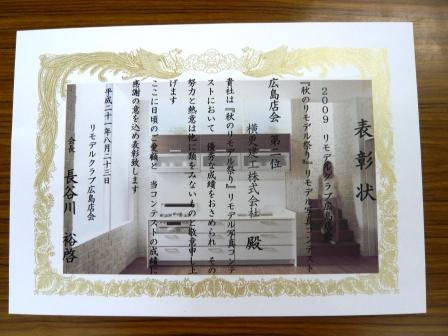 表彰状
2009 リモデルクラブ広島店会
『秋のリモデル祭り』リモデル写真コンテスト
広島店会 第一位
横東建工株式会社 殿
貴社は『秋のリモデル祭り』リモデル写真コンテ
ストにおいて 優秀な成績をおさめられ その
努力と熱意は他に類をみないものと敬意申し上
げます
ここに日頃のご愛顧と 当コンテストの成績に
感謝の意を込め表彰致します
平成二十一年八月二十三日
リモデルクラブ広島店会
会長 長谷川 裕啓